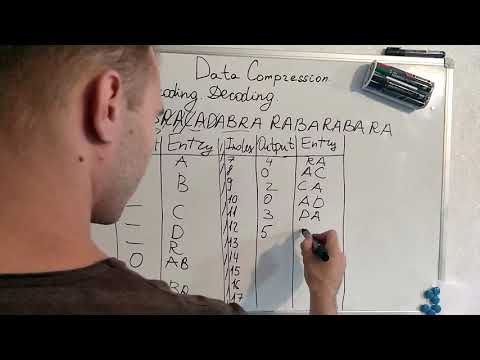 Data Compression
coding. Decoding.
BRACADABRA RABARABARA
Entry Index Output Entry
A 7 4 RA
8 0 AC
B 9 2 CA
10 0 AD
— C 11 3 DA
— D 12 5
— R 13
0 AB 14
15
BA 16
17